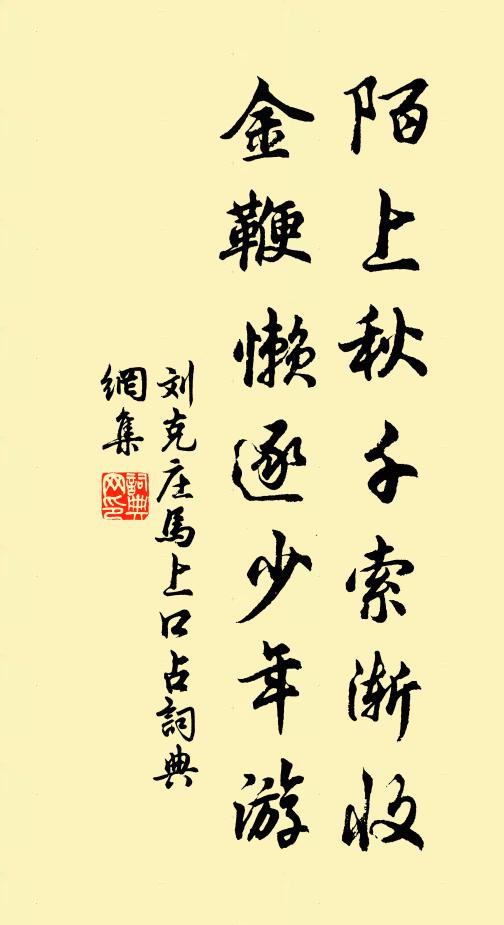 陌上秋千索渐收
金鞭懒逐少年游
刘克庄馬上口占詞典
網集
詞典
网印